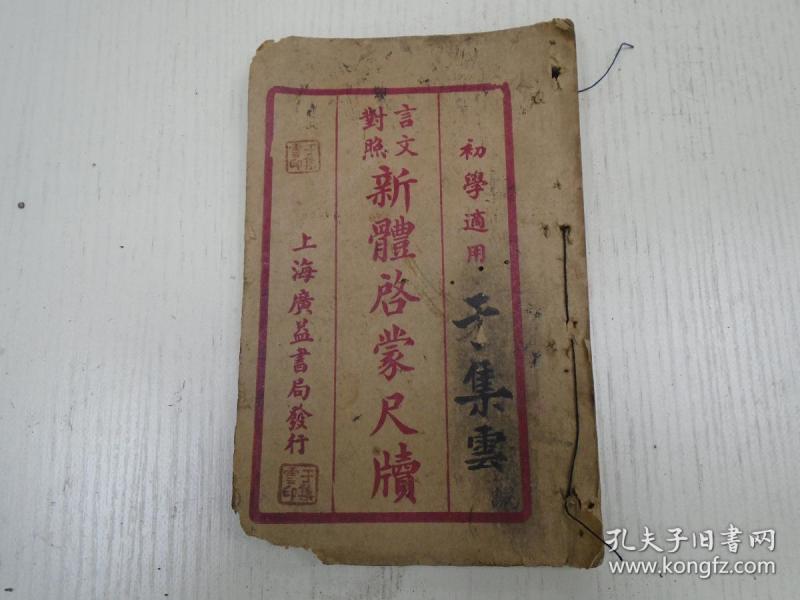 初學適用
言文
對照
新體啓蒙尺牘
上海廣益書局發行
集雲
孔夫子旧书网
www.kongfz.com